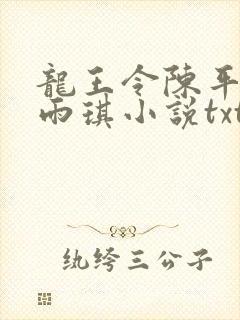 龍王令陳平
雨琪小說txt
纨绔三公子